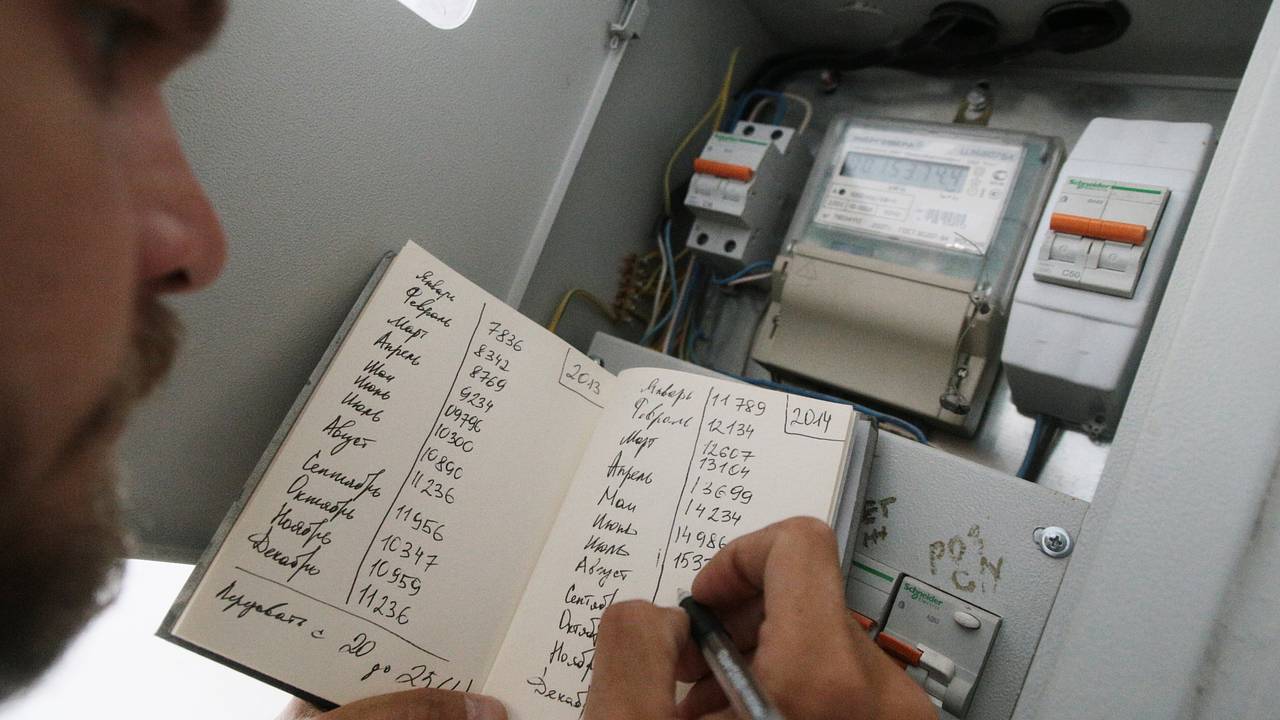 Январь 7836
Февраль 8342
Март 8769
Апрель 9234
Май 09796
Июнь 10300
Июль 10890
Август 11236
Сентябрь 11956
Октябрь 10347
Ноябрь 10959
Декабрь 11236
2013
Передавать с 20
до 25
Январь 11789
Февраль 12134
Март 12607
Апрель 13104
Май 13699
Июнь 14234
Июль 14986
Август 153
Сентяб
Октяб
Нояб
Декаб
2014
Schneider
Schneider
C50
Schneider